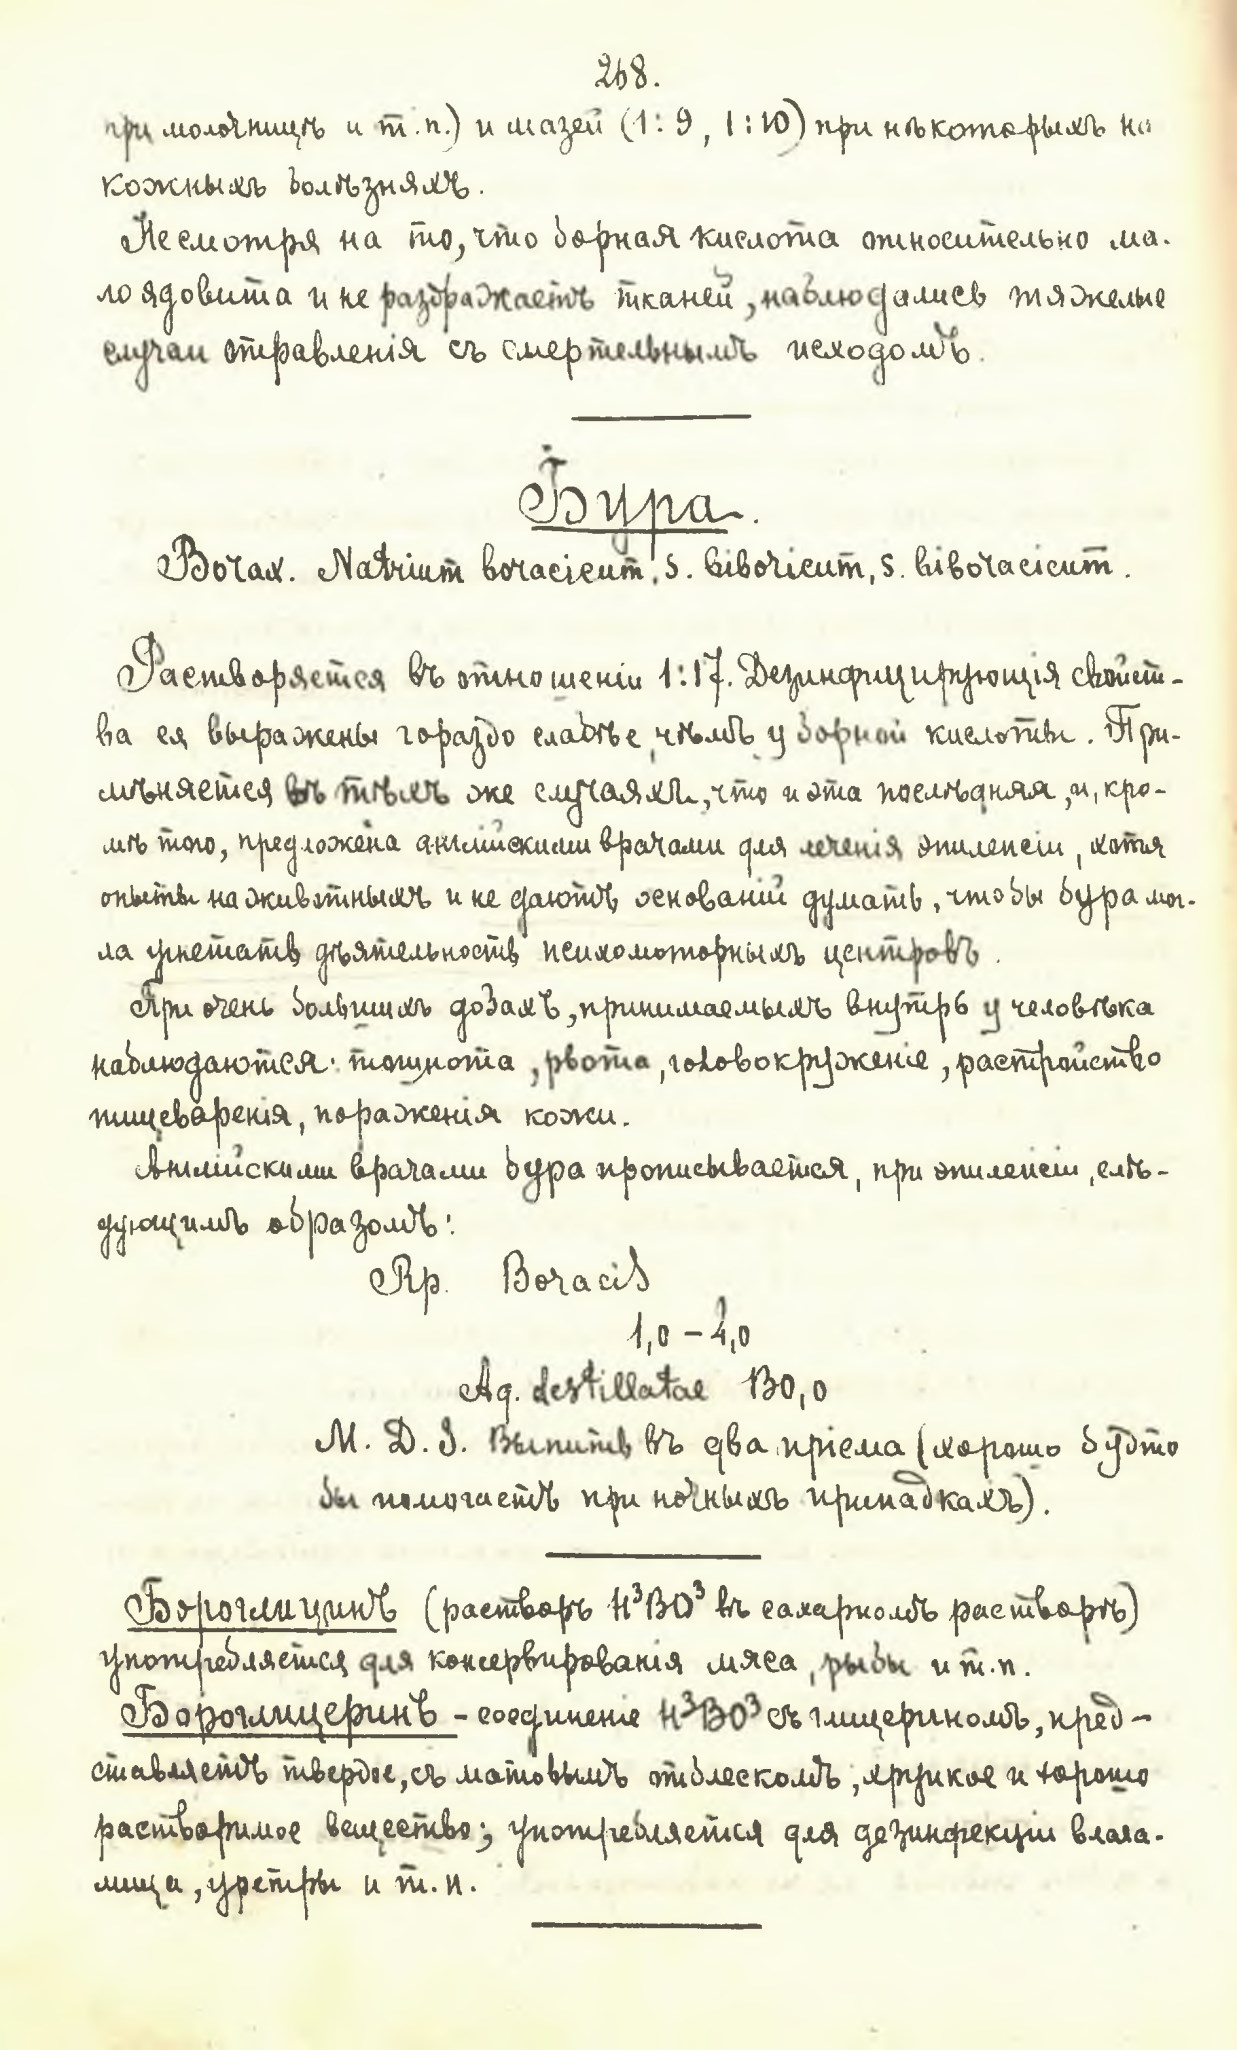 268.
при молочницѣ и т.п.) и мазей (1:9, 1:10) при нѣкоторыхъ на
кожныхъ болѣзняхъ.
Несмотря на то, что борная кислота относительно ма-
ло ядовита и не раздражаетъ тканей, наблюдались тяжелые
случаи отравленія съ смертельнымъ исходомъ.
Бура.
Borax. Natrium boracicum, s. biboricum, s. biboracicum.
Растворяется въ отношеніи 1:17. Дезинфицирующія свойст-
ва ея выражены гораздо слабѣе, чѣмъ у борной кислоты. При-
мѣняется въ тѣхъ же случаяхъ, что и эта послѣдняя, и, кро-
мѣ того, предложена англійскими врачами для леченія эпилепсіи, хотя
опыты на животныхъ и не даютъ основаній думать, чтобы бура мог-
ла угнетать дѣятельность психомоторныхъ центровъ.
При очень большихъ дозахъ, принимаемыхъ внутрь у человѣка
наблюдаются: тошнота, рвота, головокруженіе, растройство
пищеваренія, пораженія кожи.
Англійскими врачами бура прописывается, при эпилепсіи, слѣ-
дующимъ образомъ:
Rp. Boracis
1,0 – 4,0
Aq. destillatae 130,0
M. D. S. Выпить въ два пріема (хорошо будто
бы помогаетъ при ночныхъ припадкахъ).
Бороглицинъ (растворъ H³BO³ въ сахарномъ растворѣ)
употребляется для консервированія мяса, рыбы и т.п.
Бороглицеринъ – соединеніе H³BO³ съ глицериномъ, пред-
ставляетъ твердое, съ матовымъ отблескомъ, хрупкое и хорошо
растворимое вещество; употребляется для дезинфекціи влага-
лища, уретры и т.п.